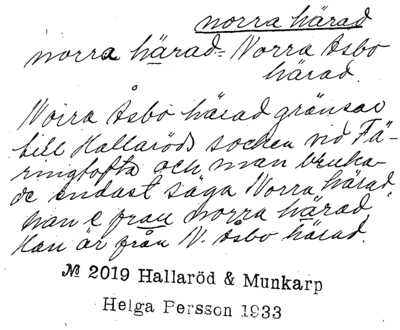 norra härad
norra härad = Norra Åsbo
härad.
Norra Åsbo härad gränsar
till Hallaröds socken vid Fä-
ringtofta och man bruka-
de endast säga Norra härad.
han e frau norra härad.
Han är från N. Åsbo härad.
№ 2019 Hallaröd & Munkarp
Helga Persson 1933